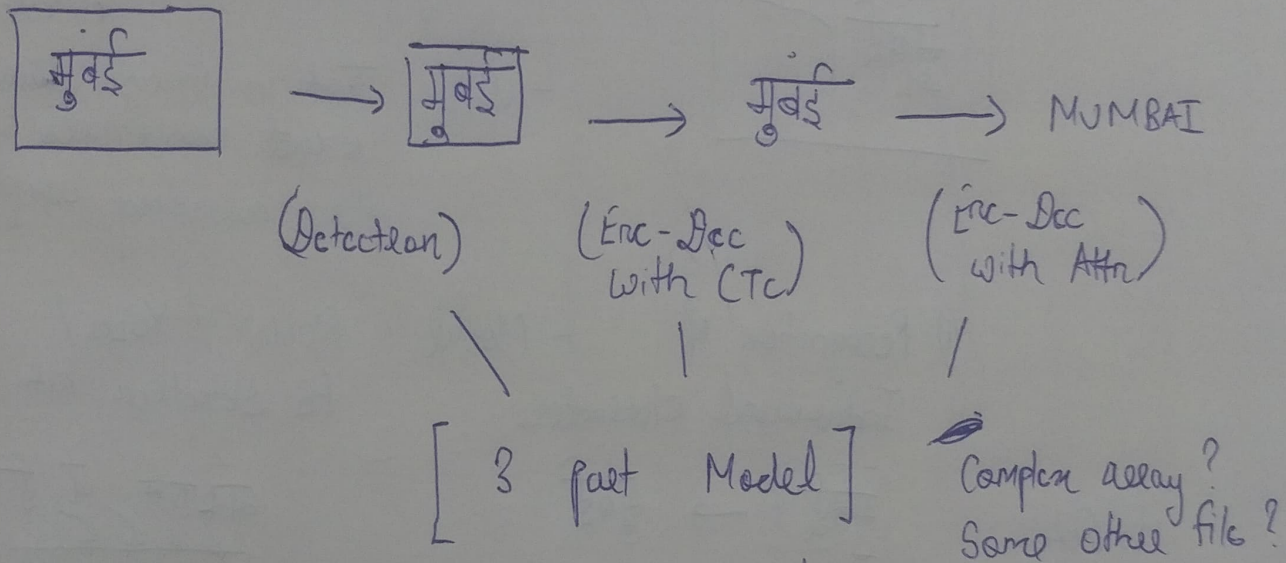 मुंबई → मुंबई → मुंबई → MUMBAI
(Detection) (Enc-Dec with CTC) (Enc-Dec with Attn)
[ 3 part Model ]
Complex array?
Some other file?